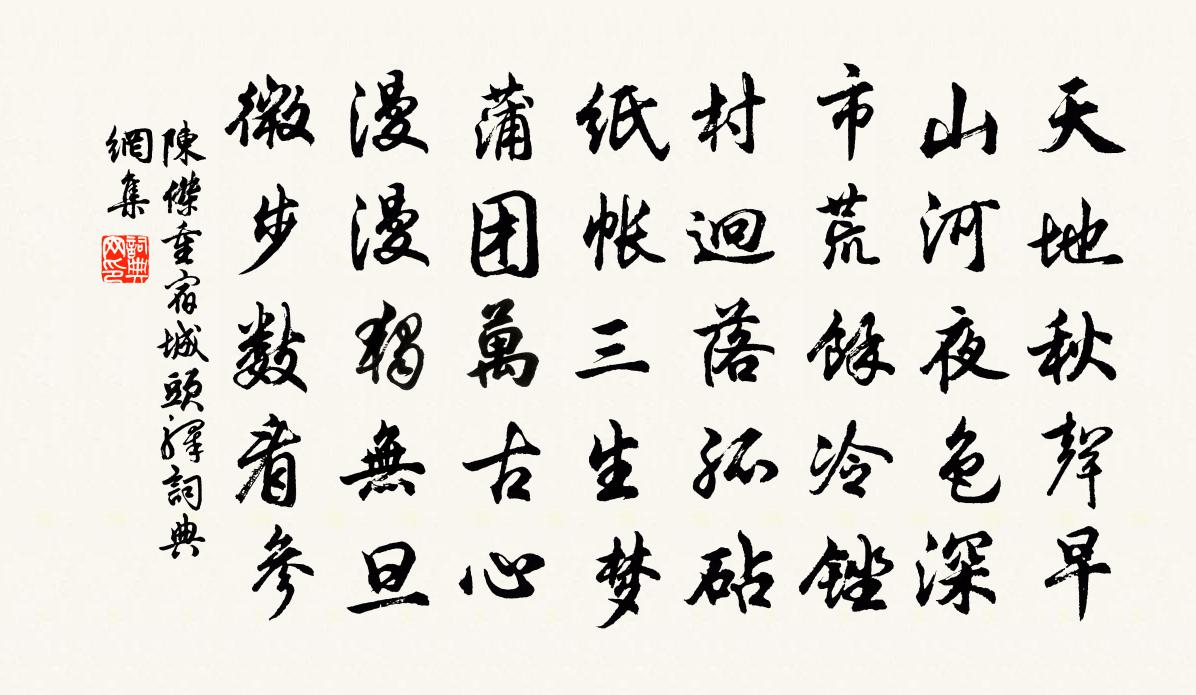 天地秋聲早
山河夜色深
市荒餘冷銼
村迥落孤砧
纸帐三生梦
蒲团萬古心
漫漫獨無旦
微步數看參
陳傑重宿城頭驛詞典
網集
詞典
网印